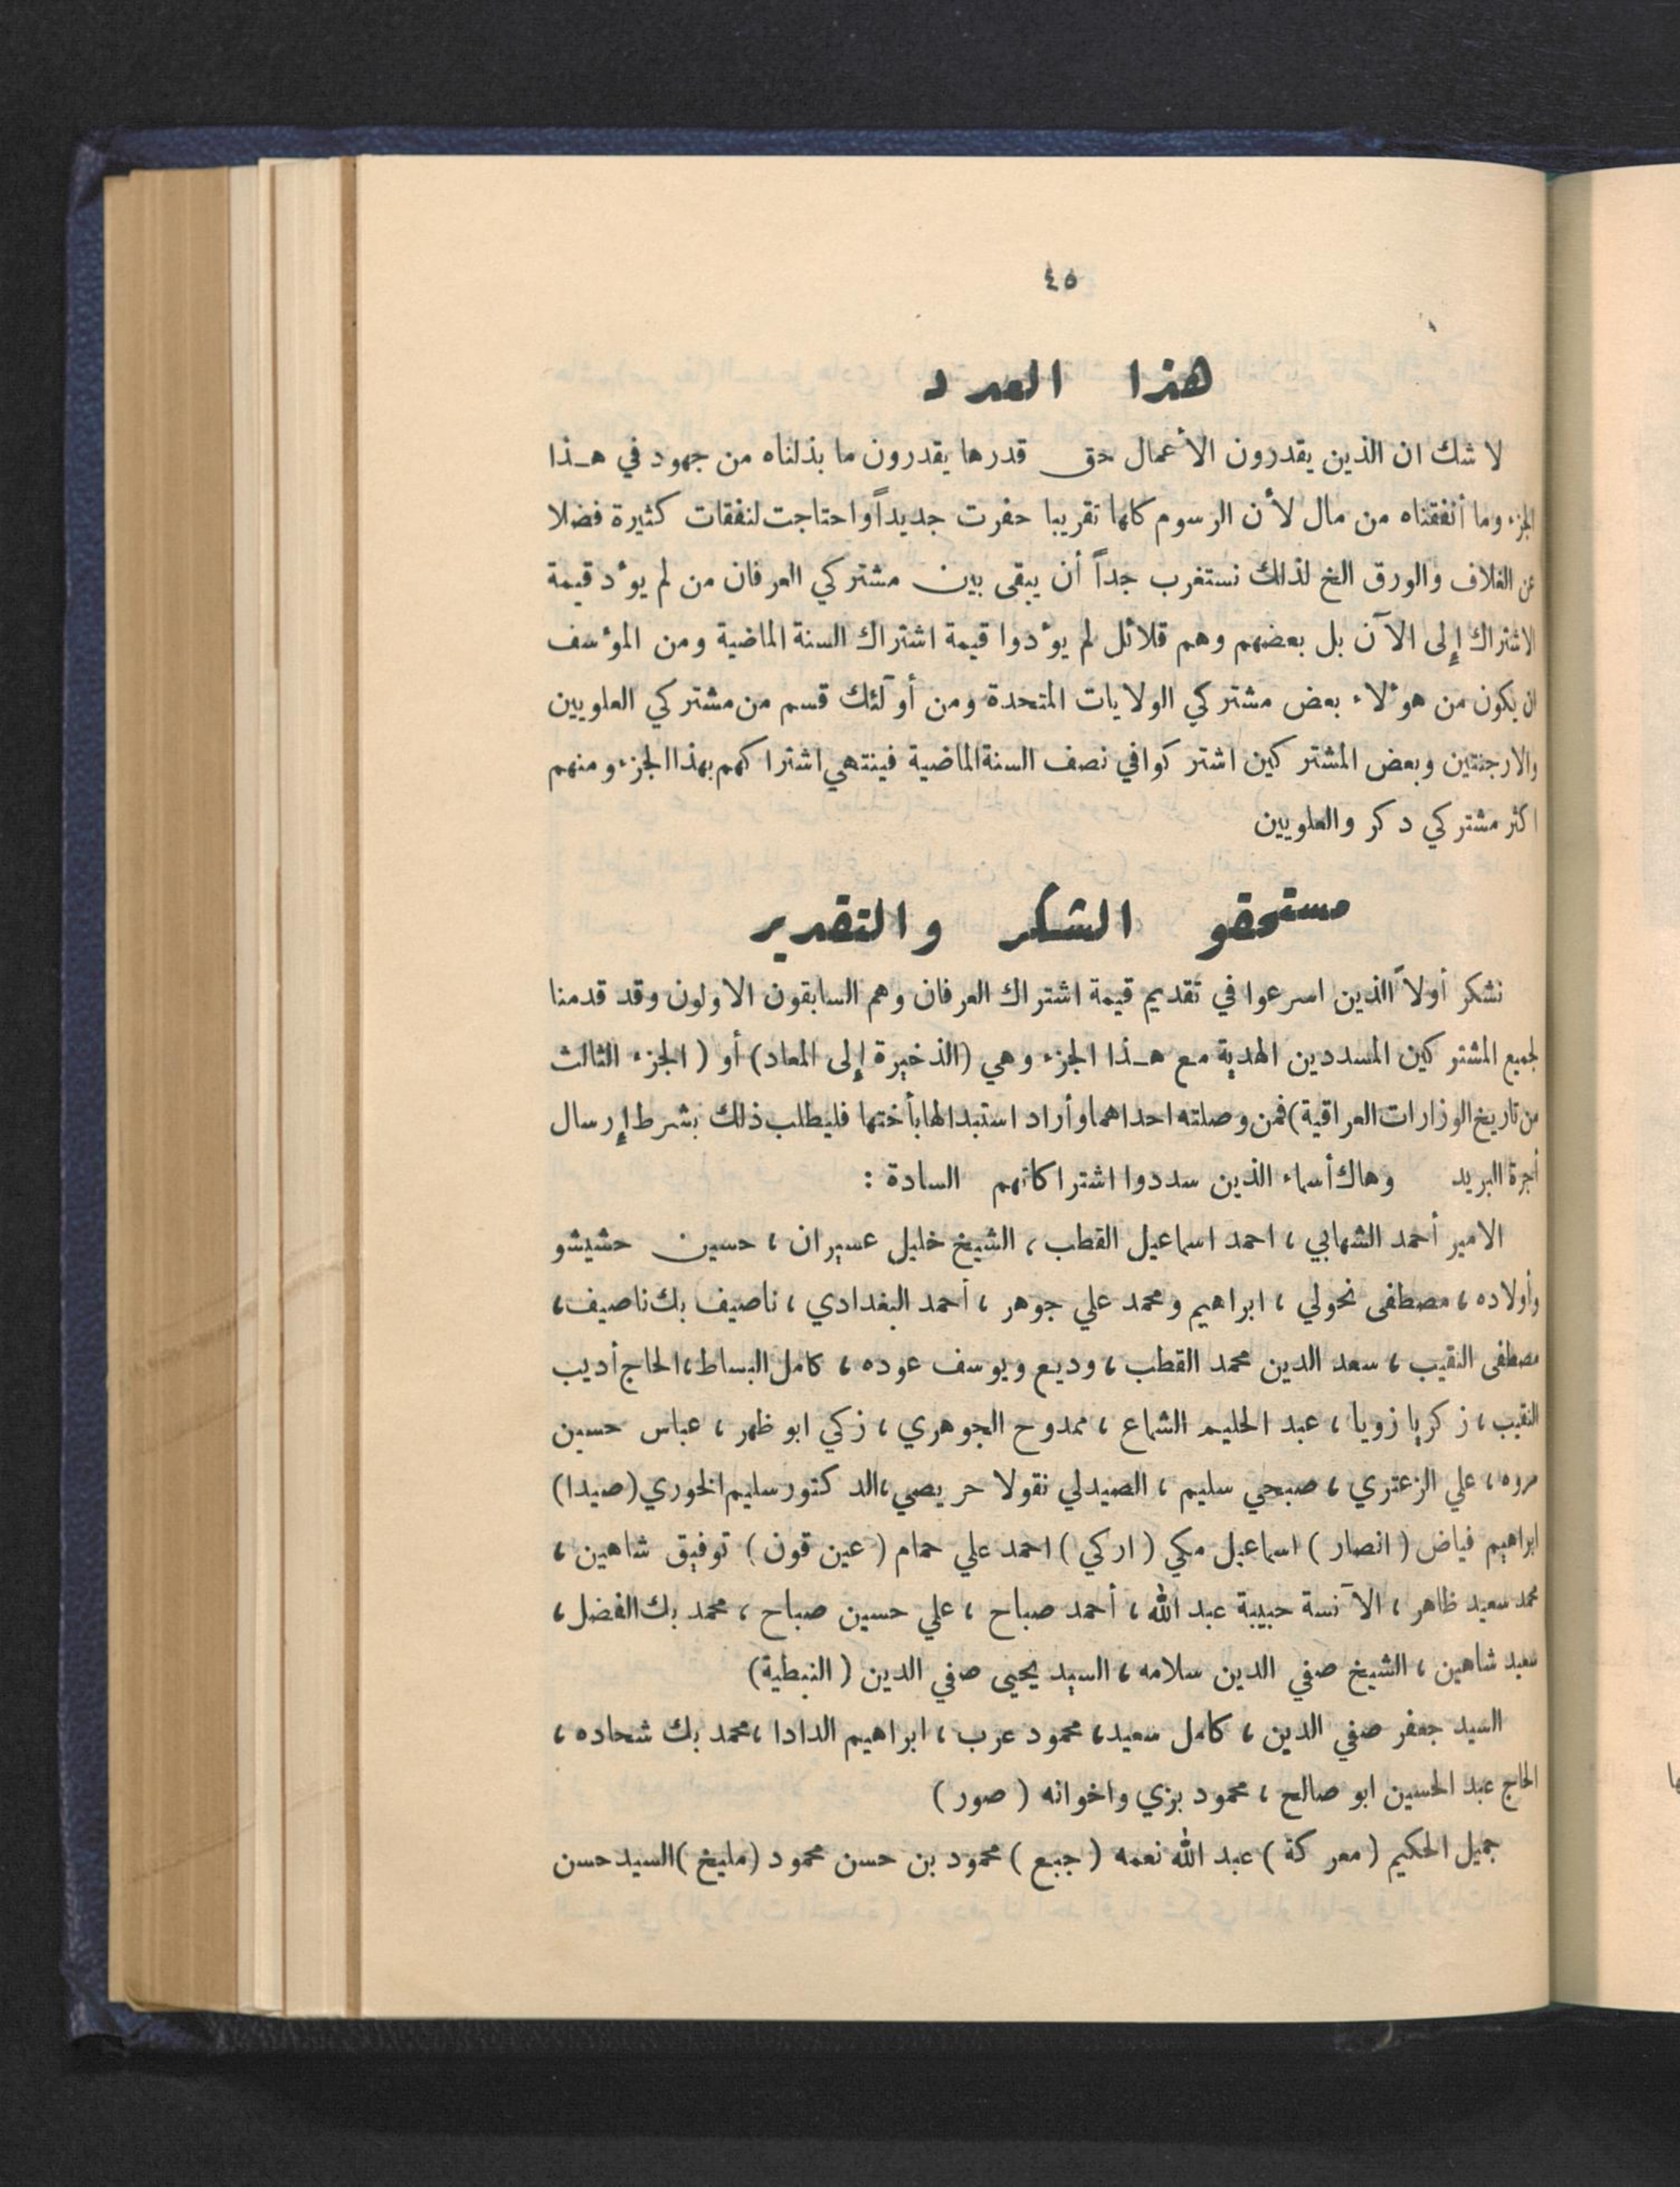 ٤٥
هذا العدد
لا شك ان الذين يقدرون الأعمال حق قدرها يقدرون ما بذلناه من جهود في هـذا
الجزء وما أنفقناه من مال لأن الرسوم كلها تقريبا حفرت جديداً واحتاجت لنفقات كثيرة فضلا
عن الغلاف والورق الخ لذلك نستغرب جداً أن يبقى بين مشتركي العرفان من لم يؤد قيمة
الاشتراك إلى الآن بل بعضهم وهم قلائل لم يؤدوا قيمة اشتراك السنة الماضية ومن المؤسف
ان يكون من هؤلاء بعض مشتركي الولايات المتحدة ومن أولئك قسم من مشتركي العلويين
والارجنتين وبعض المشتركين اشتركوا في نصف السنة الماضية فينتهي اشتراكهم بهذا الجزء ومنهم
اكثر مشتركي دكر والعلويين
مستحقو الشكر والتقدير
نشكر أولاً الذين اسرعوا في تقديم قيمة اشتراك العرفان وهم السابقون الاولون وقد قدمنا
لجميع المشتركين المسددين الهدية مع هـذا الجزء وهي (الذخيرة إلى المعاد) أو ( الجزء الثالث
من تاريخ الوزارات العراقية) فمن وصلته احداهما وأراد استبدالها بأختها فليطلب ذلك بشرط إرسال
أجرة البريد وهاك أسماء الذين سددوا اشتراكاتهم السادة :
الامير أحمد الشهابي ، احمد اسماعيل القطب ، الشيخ خليل عسيران ، حسين حشيشو
وأولاده ، مصطفى نحولي ، ابراهيم ومحمد علي جوهر ، أحمد البغدادي ، ناصيف بك ناصيف ،
مصطفى النقيب ، سعد الدين محمد القطب ، وديع ويوسف عوده ، كامل البساط ، الحاج أديب
النقيب ، زكريا زويا ، عبد الحليم الشماع ، ممدوح الجوهري ، زكي ابو ظهر ، عباس حسين
مروه ، علي الزعتري ، صبحي سليم ، الصيدلي نقولا حريصي ، الدكتور سليم الخوري (صيدا)
ابراهيم فياض ( انصار ) اسماعيل مكي ( اركي ) احمد علي حمام ( عين قون ) توفيق شاهين ،
محمد سعيد ظاهر ، الآنسة حبيبة عبد الله ، أحمد صباح ، علي حسين صباح ، محمد بك الفضل ،
سعيد شاهين ، الشيخ صفي الدين سلامه ، السيد يحيى صفي الدين ( النبطية)
السيد جعفر صفي الدين ، كامل سعيد ، محمود عرب ، ابراهيم الدادا ، محمد بك شحاده ،
الحاج عبد الحسين ابو صالح ، محمود بزي واخوانه ( صور )
جميل الحكيم ( معركة ) عبد الله نعمه ( جبع ) محمود بن حسن محمود (مليخ ) السيد حسن